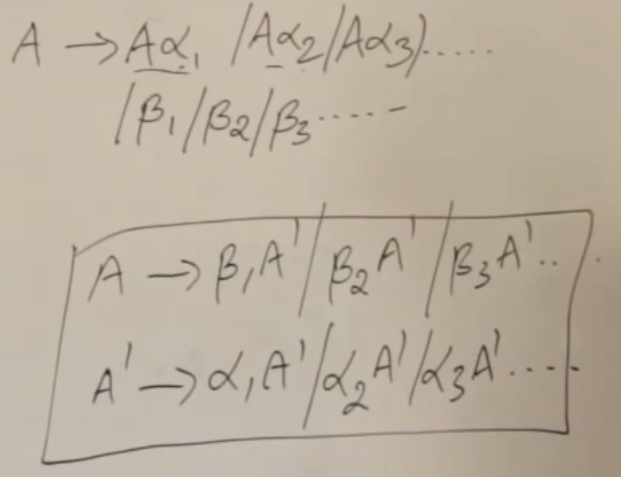 A → Aα₁ /Aα₂/Aα₃/.....
/β₁/β₂/β₃.....
A → β₁A'/β₂A'/β₃A'...
A' → α₁A'/α₂A'/α₃A'.....